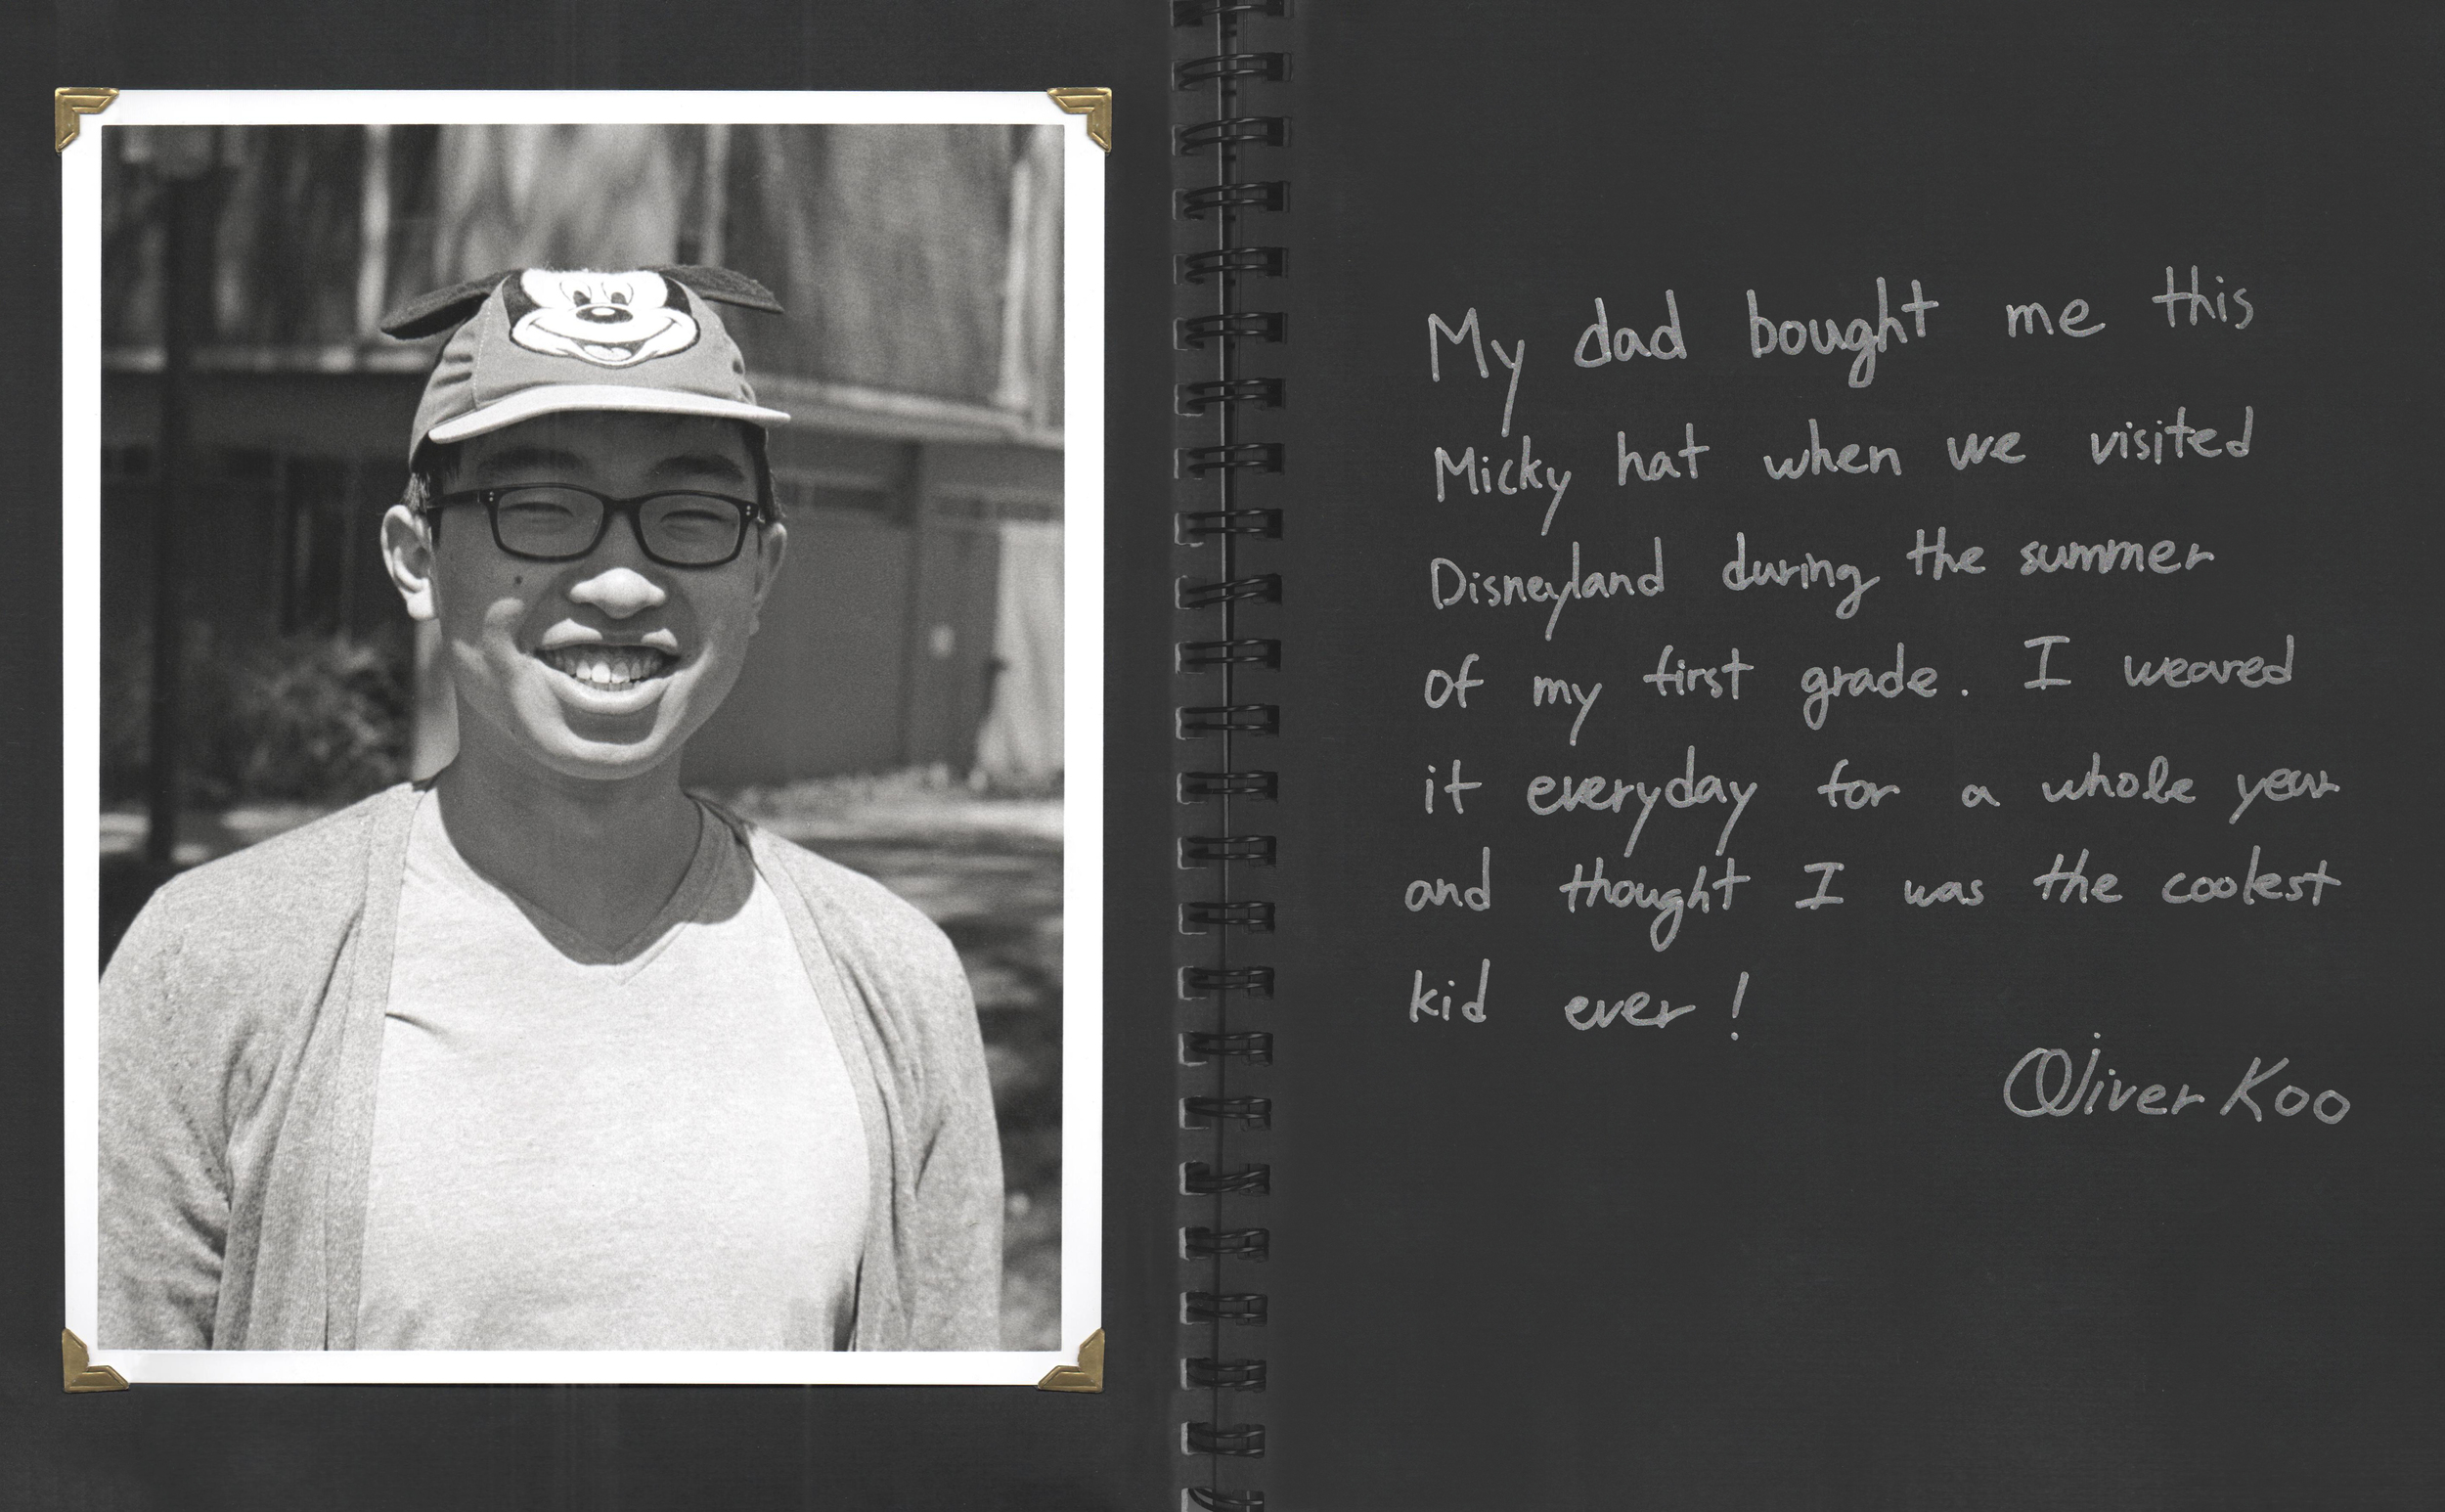 My dad bought me this
Micky hat when we visited
Disneyland during the summer
of my first grade. I weared
it everyday for a whole year
and thought I was the coolest
kid ever!
Oliver Koo